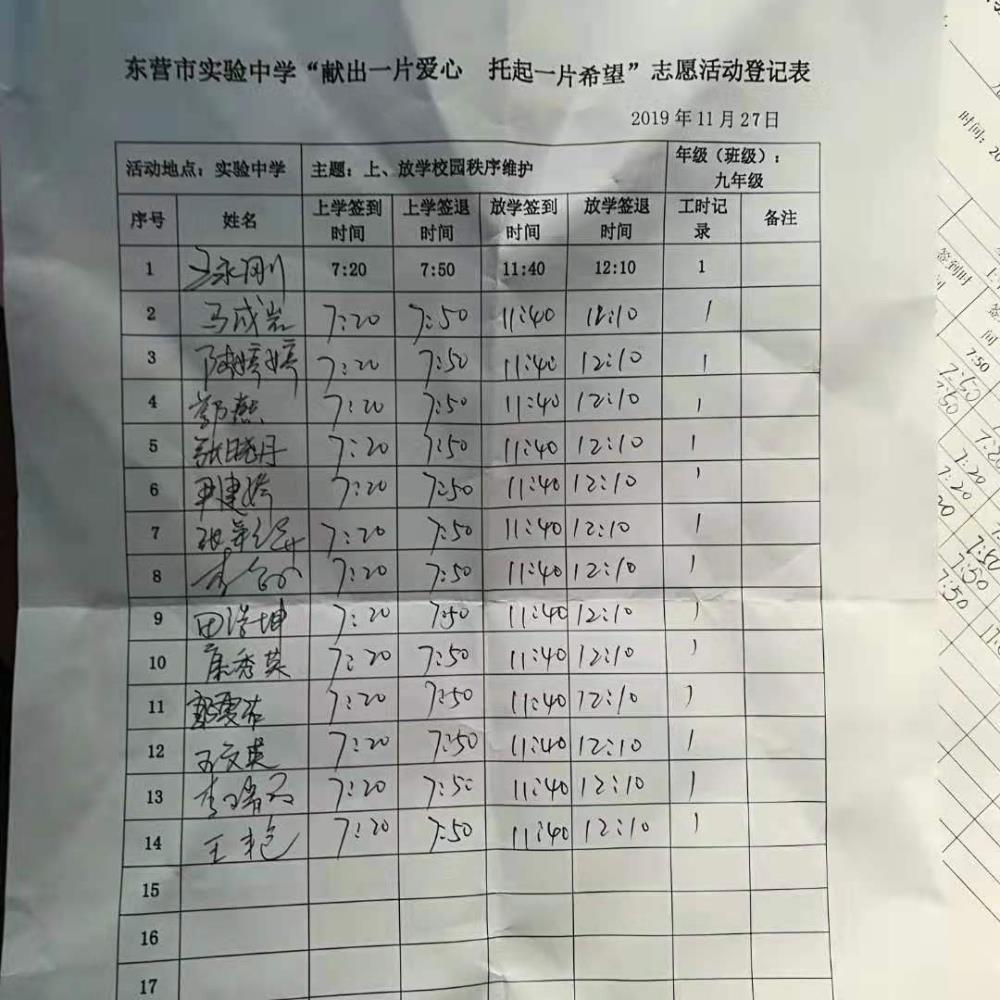 东营市实验中学“献出一片爱心 托起一片希望”志愿活动登记表
2019年11月27日
活动地点：实验中学 主题：上、放学校园秩序维护 年级（班级）：九年级
序号 姓名 上学签到时间 上学签退时间 放学签到时间 放学签退时间 工时记录 备注
1 王永刚 7:20 7:50 11:40 12:10 1
2 马成岩 7:20 7:50 11:40 12:10 1
3 陈婷婷 7:20 7:50 11:40 12:10 1
4 郭燕 7:20 7:50 11:40 12:10 1
5 张晓丹 7:20 7:50 11:40 12:10 1
6 尹建娇 7:20 7:50 11:40 12:10 1
7 7:20 7:50 11:40 12:10 1
8 7:20 7:50 11:40 12:10 1
9 田浩坤 7:20 7:50 11:40 12:10 1
10 秀英 7:20 7:50 11:40 12:10 1
11 7:20 7:50 11:40 12:10 1
12 文英 7:20 7:50 11:40 12:10 1
13 李 7:20 7:50 11:40 12:10 1
14 王艳 7:20 7:50 11:40 12:10 1
15
16
17
时间：20
签到时
签
间
间
7:50
7:50
7:50
7:20
7:20
7:50
7:50
7:50